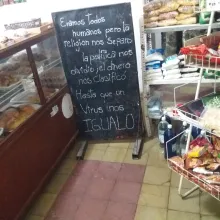 Eramos Todos
humanos pero la
religion nos Separo
la politica nos
dividio y el dinero
nos Clasifico
Hasta que un
Virus inos
IGUALO